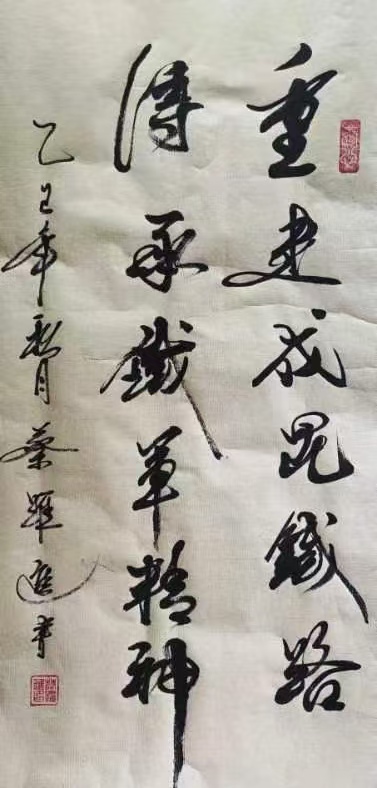 重建成昆鐵路
傳承鐵軍精神
乙巳年 月蔡躍進書